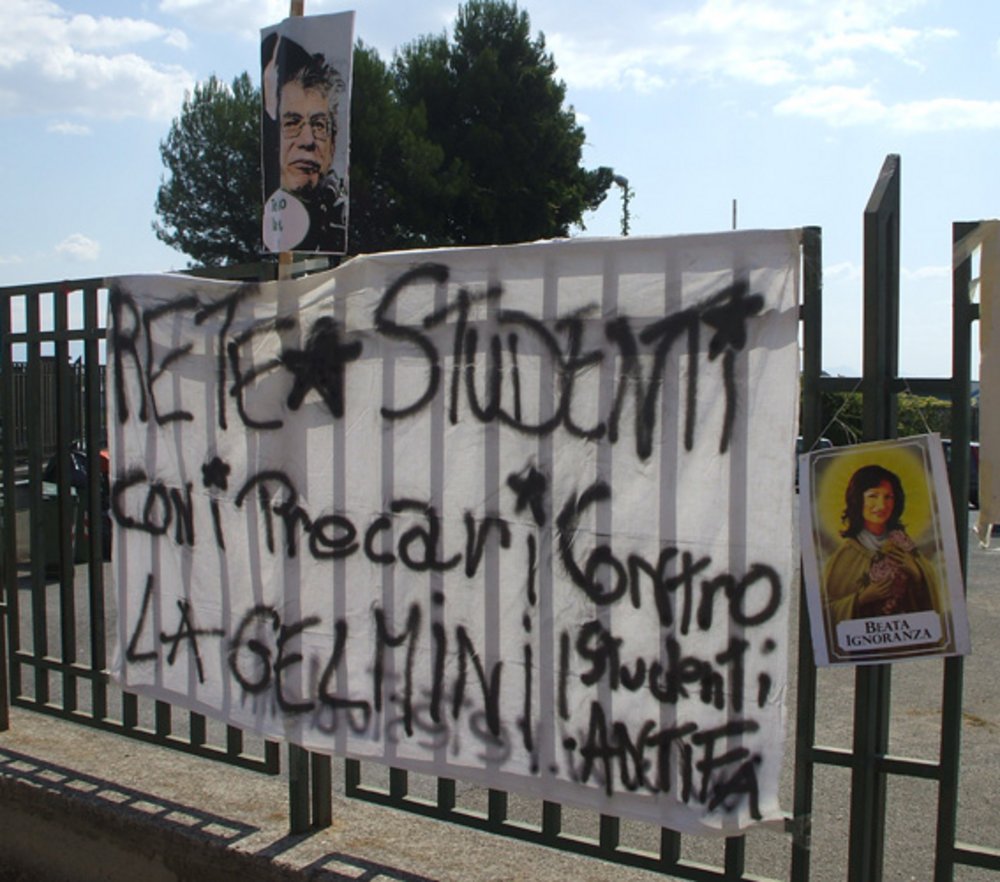 RETE STUDENTI
CON i Precari CONTrO
LA GELMINI
Studenti
ANTIFA
BEATA
IGNORANZA